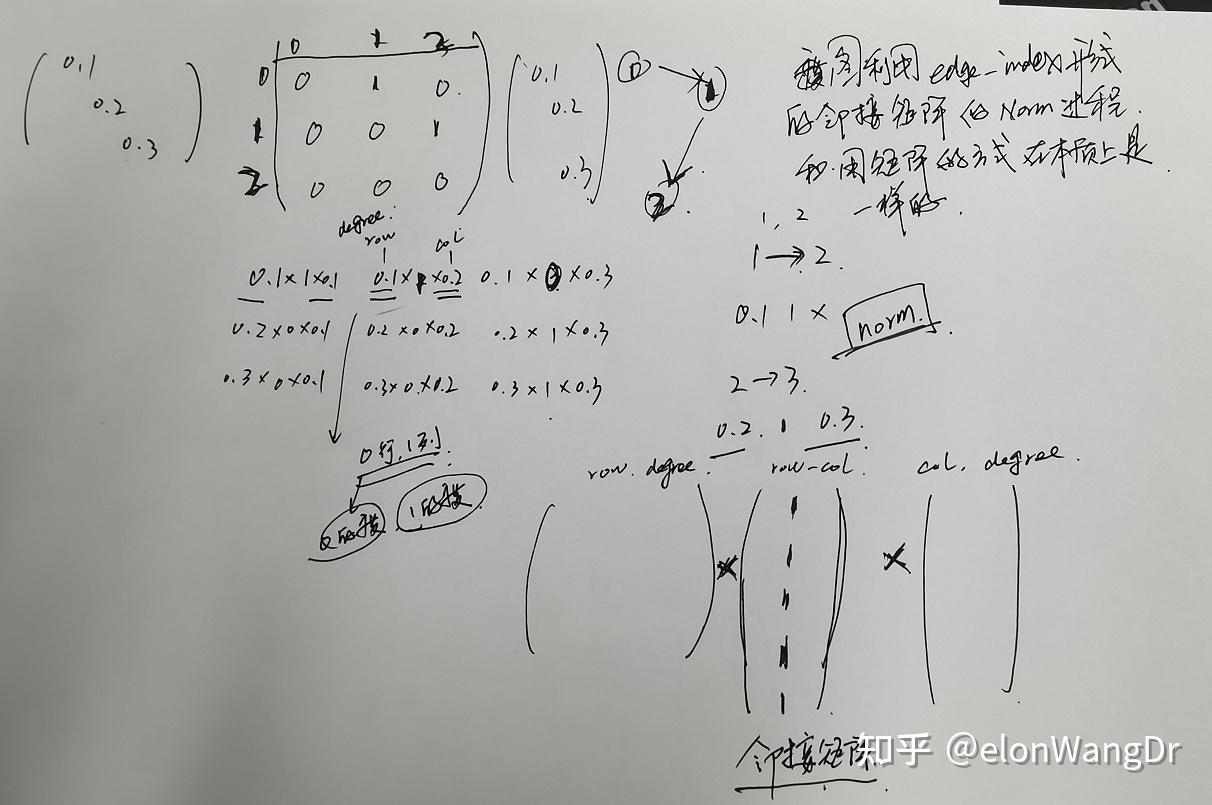 0.1
0.2
0.3
0 1 2
0 0 1 0
1 0 0 1
2 0 0 0
0.1
0.2
0.3
0 → 1
2
图利用 edge-index 形式
的邻接矩阵的 Norm 过程.
和用矩阵的方式在本质上是
一样的.
1, 2
1 → 2.
0.1 1 × norm.
2 → 3.
0.2. 1 0.3.
degree:
row col
0.1×1×0.1 0.1×1×0.2 0.1×0×0.3
0.2×0×0.1 0.2×0×0.2 0.2×1×0.3
0.3×0×0.1 0.3×0×0.2 0.3×1×0.3
0行,1列.
0的度 1的度
row. degree. row-col. col. degree.
× ×
1
1
1
1
1
邻接矩阵.
知乎 @elonWangDr